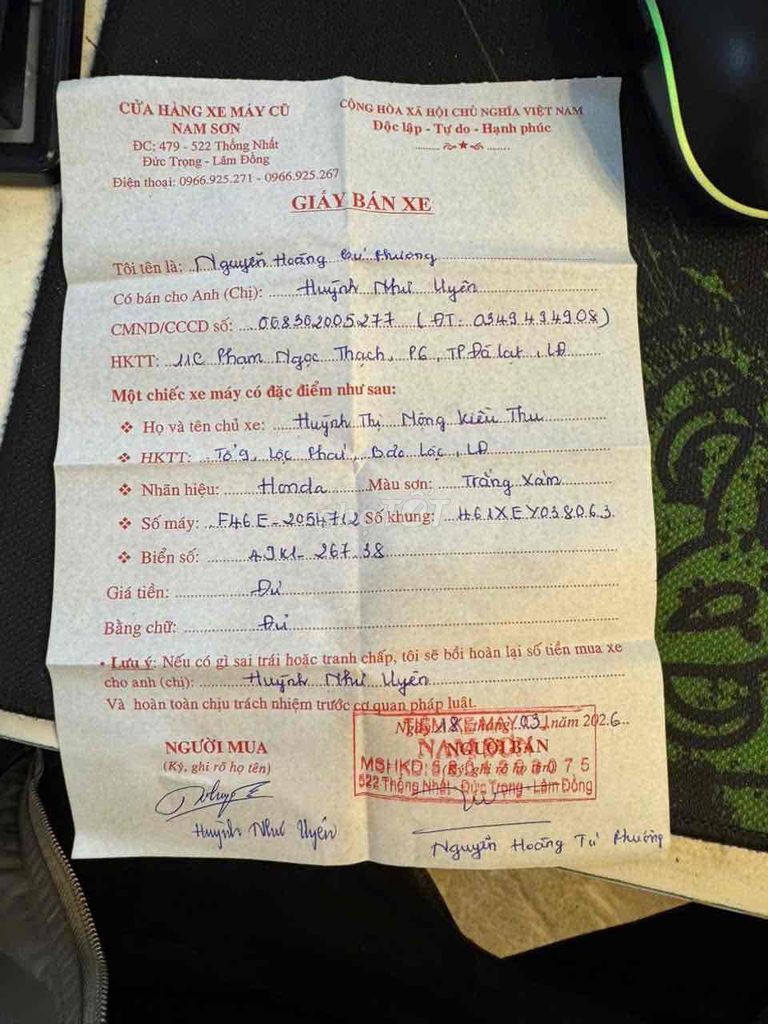 CỬA HÀNG XE MÁY CŨ
NAM SƠN
ĐC: 479 - 522 Thống Nhất
Đức Trọng - Lâm Đồng
Điện thoại: 0966.925.271 - 0966.925.267
CỘNG HÒA XÃ HỘI CHỦ NGHĨA VIỆT NAM
Độc lập - Tự do - Hạnh phúc
GIẤY BÁN XE
Tôi tên là: Nguyễn Hoàng Tú Phương
Có bán cho Anh (Chị): Huỳnh Như Uyên
CMND/CCCD số: 068302005277 (ĐT: 0349494908)
HKTT: 11C Phạm Ngọc Thạch, P6, TP Đà Lạt, LĐ
Một chiếc xe máy có đặc điểm như sau:
❖ Họ và tên chủ xe: Huỳnh Thị Mộng Kiều Thu
❖ HKTT: Tổ 9, Lộc Phát, Bảo Lộc, LĐ
❖ Nhãn hiệu: Honda Màu sơn: Trắng Xám
❖ Số máy: F46E-2054712 Số khung: H61XEY038063
❖ Biển số: 49K1-267.38
Giá tiền: Đủ
Bằng chữ: Đủ
• Lưu ý: Nếu có gì sai trái hoặc tranh chấp, tôi sẽ bồi hoàn lại số tiền mua xe
cho anh (chị): Huỳnh Như Uyên
Và hoàn toàn chịu trách nhiệm trước cơ quan pháp luật.
Ngày 18 tháng 03 năm 2026
NGƯỜI MUA
(Ký, ghi rõ họ tên)
Huỳnh Như Uyên
NGƯỜI BÁN
(Ký, ghi rõ họ tên)
TIỆM XE MÁY
NAM SƠN
MSHKD:
522 Thống Nhất - Đức Trọng - Lâm Đồng
Nguyễn Hoàng Tú Phương